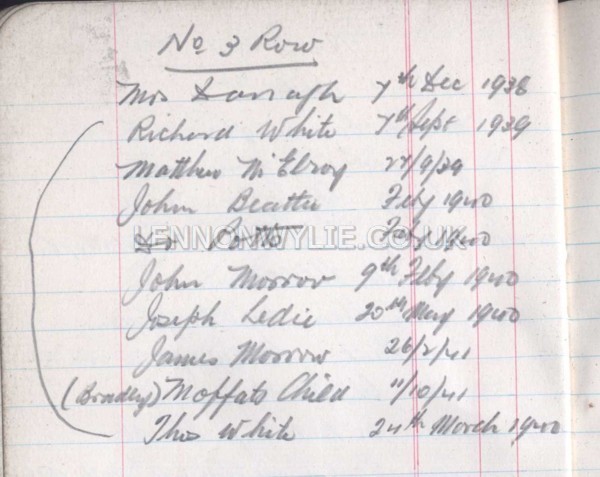 No 3 Row
Mrs Darragh 7th Dec 1938
Richard White 7th Sept 1939
Matthew McElroy 27/9/39
John Beattie Feby 1940
Feby 1940
LENNONWYLIE.CO.UK
John Morrow 9th Feby 1940
Joseph Ledie 20th May 1940
James Morrow 26/2/41
(Bradley) Moffats Child 11/10/41
Thos White 24th March 1940